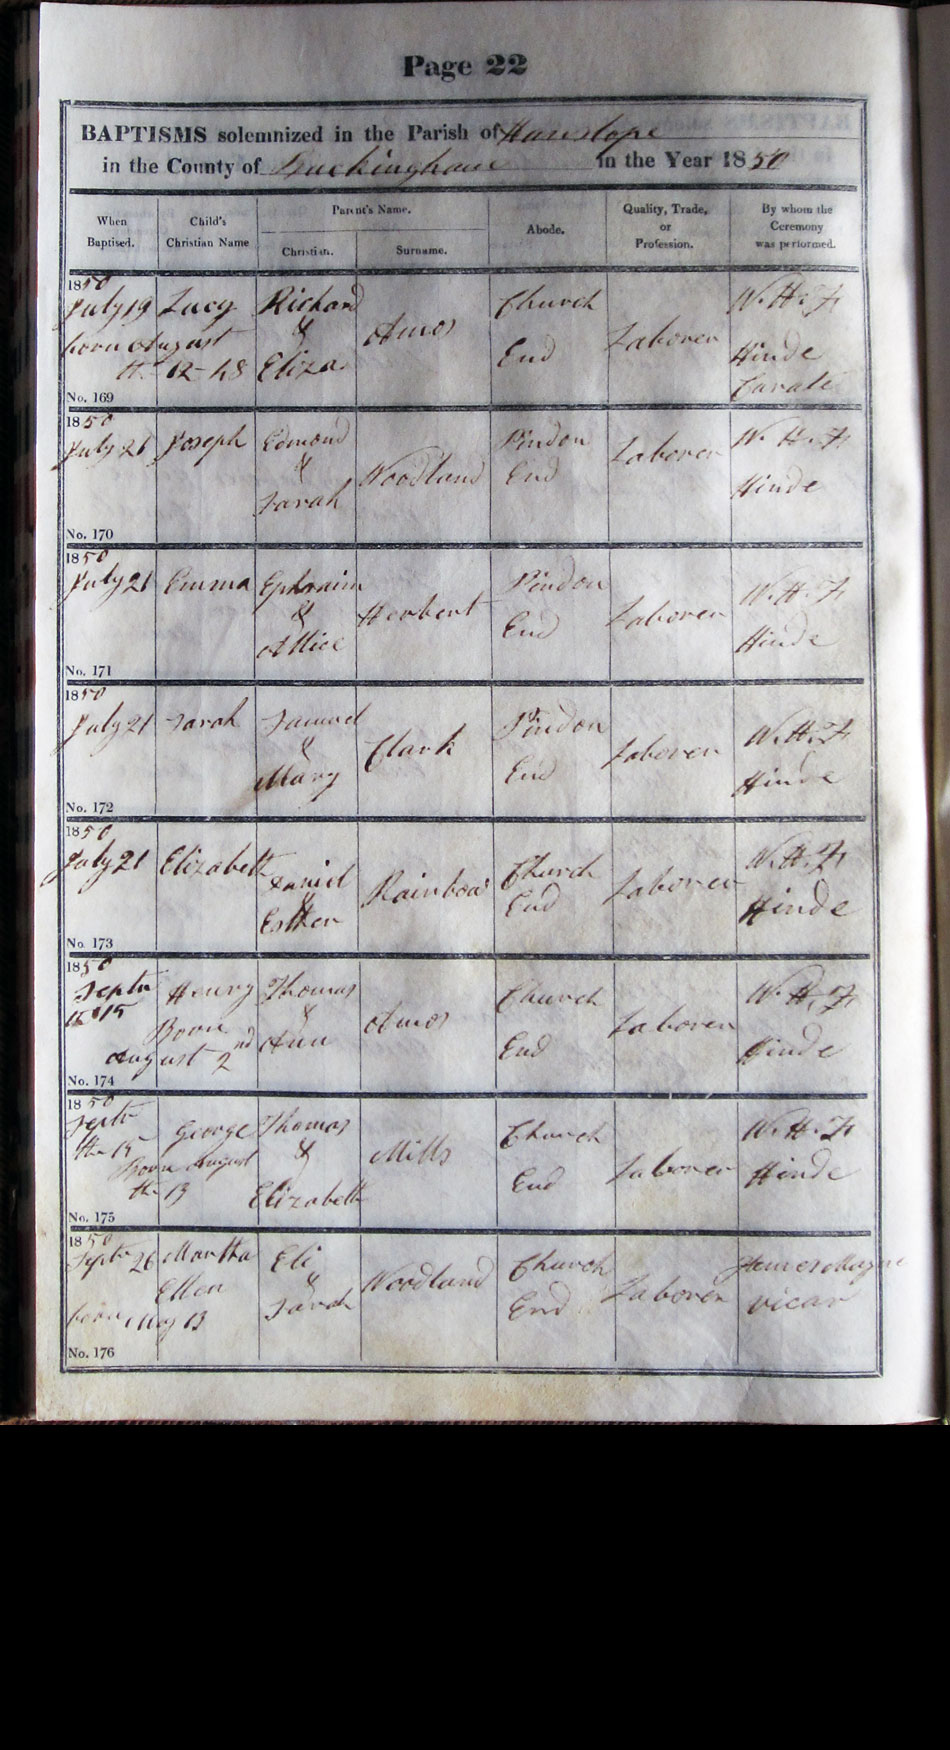 Page 22
BAPTISMS solemnized in the Parish of Hanslope
in the County of Buckingham in the Year 1850
When Baptised.
Child's Christian Name
Parent's Name.
Christian.
Surname.
Abode.
Quality, Trade, or Profession.
By whom the Ceremony was performed.
1850
July 19 Lucy Richard & Eliza Amos Church End Laborer W. H. F. Hinde Curate
born August
th 12 - 48
No. 169
1850
July 21 Joseph Edmond & Sarah Woodland Pindon End Laborer W. H. F. Hinde
No. 170
1850
July 21 Emma Ephraim & Allice Herbert Pindon End Laborer W. H. F. Hinde
No. 171
1850
July 21 Sarah Samuel & Mary Clark Pindon End Laborer W. H. F. Hinde
No. 172
1850
July 21 Elizabeth Daniel & Esther Rainbow Church End Laborer W. H. F. Hinde
No. 173
1850
Septr 15 Henry Thomas & Ann Amos Church End Laborer W. H. F. Hinde
Born
August 2nd
No. 174
1850
Septr th 15 George Thomas & Elizabeth Mills Church End Laborer W. H. F. Hinde
Born August
th 13
No. 175
1850
Septr 26 Martha Ellen Eli & Sarah Woodland Church End Laborer James Mayne vicar
born May 13
No. 176